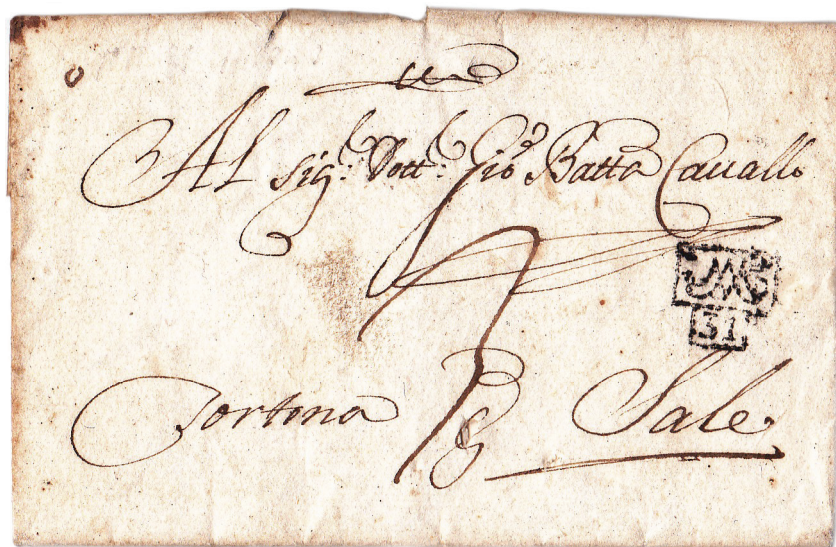 Al Sig.r Dott.r Gio Batta Cavallo
31
Tortona P Sale